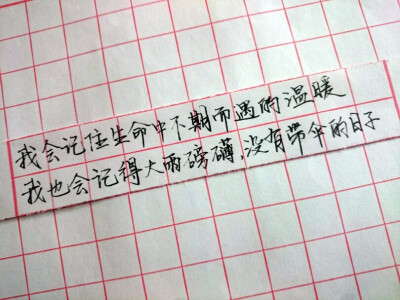 我会记住生命中不期而遇的温暖
我也会记得大雨磅礴,没有带伞的日子